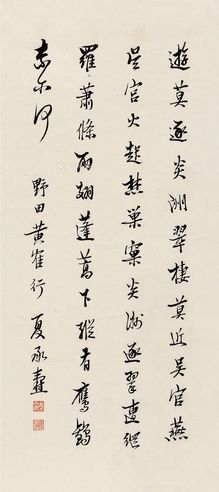 遊莫逐炎洲翠棲莫近吴宫燕
吴宫火起焚巢窠炎洲逐翠遭網
羅蕭條兩翅蓬蒿下縱有鷹鸇
奈尔何
野田黄雀行 夏承燾